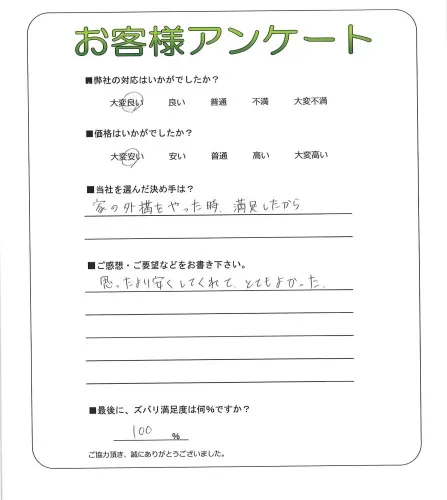 お客様アンケート
■弊社の対応はいかがでしたか?
大変良い 良い 普通 不満 大変不満
■価格はいかがでしたか?
大変安い 安い 普通 高い 大変高い
■当社を選んだ決め手は?
家の外構をやった時、満足したから
■ご感想・ご要望などをお書き下さい。
思ったより安くしてくれて、とてもよかった。
■最後に、ズバリ満足度は何%ですか?
100 %
ご協力頂き、誠にありがとうございました。